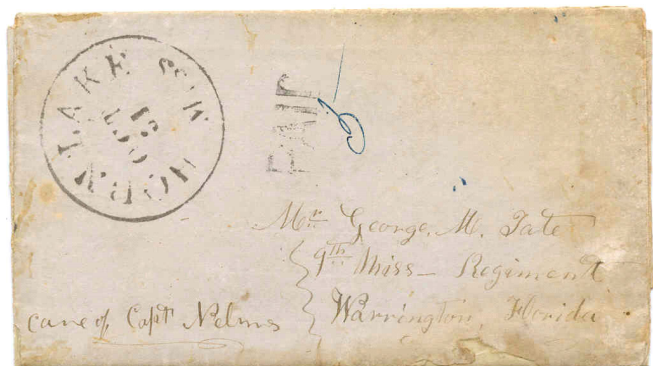 HORN LAKE MISS
PAID
5
Mr. George. M. Tate
9th Miss- Regiment
Warrington, Florida
care of, Capt Nelms